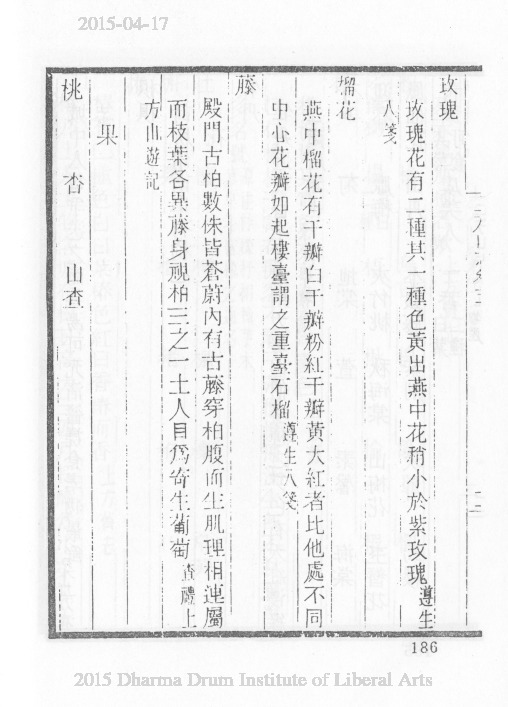 2015-04-17
玫瑰
玫瑰花有二種其一種色黃出燕中花稍小於紫玫瑰遵生
八箋
榴花
燕中榴花有千瓣白千瓣粉紅千瓣黃大紅者比他處不同
中心花瓣如起樓臺謂之重臺石榴遵生八箋
藤
殿門古柏數侏皆蒼蔚內有古藤穿柏腹而生肌理相連屬
而枝葉各異藤身視柏三之一土人目爲寄生葡萄查禮上
方山遊記
果
桃 杏 山查
186
2015 Dharma Drum Institute of Liberal Arts